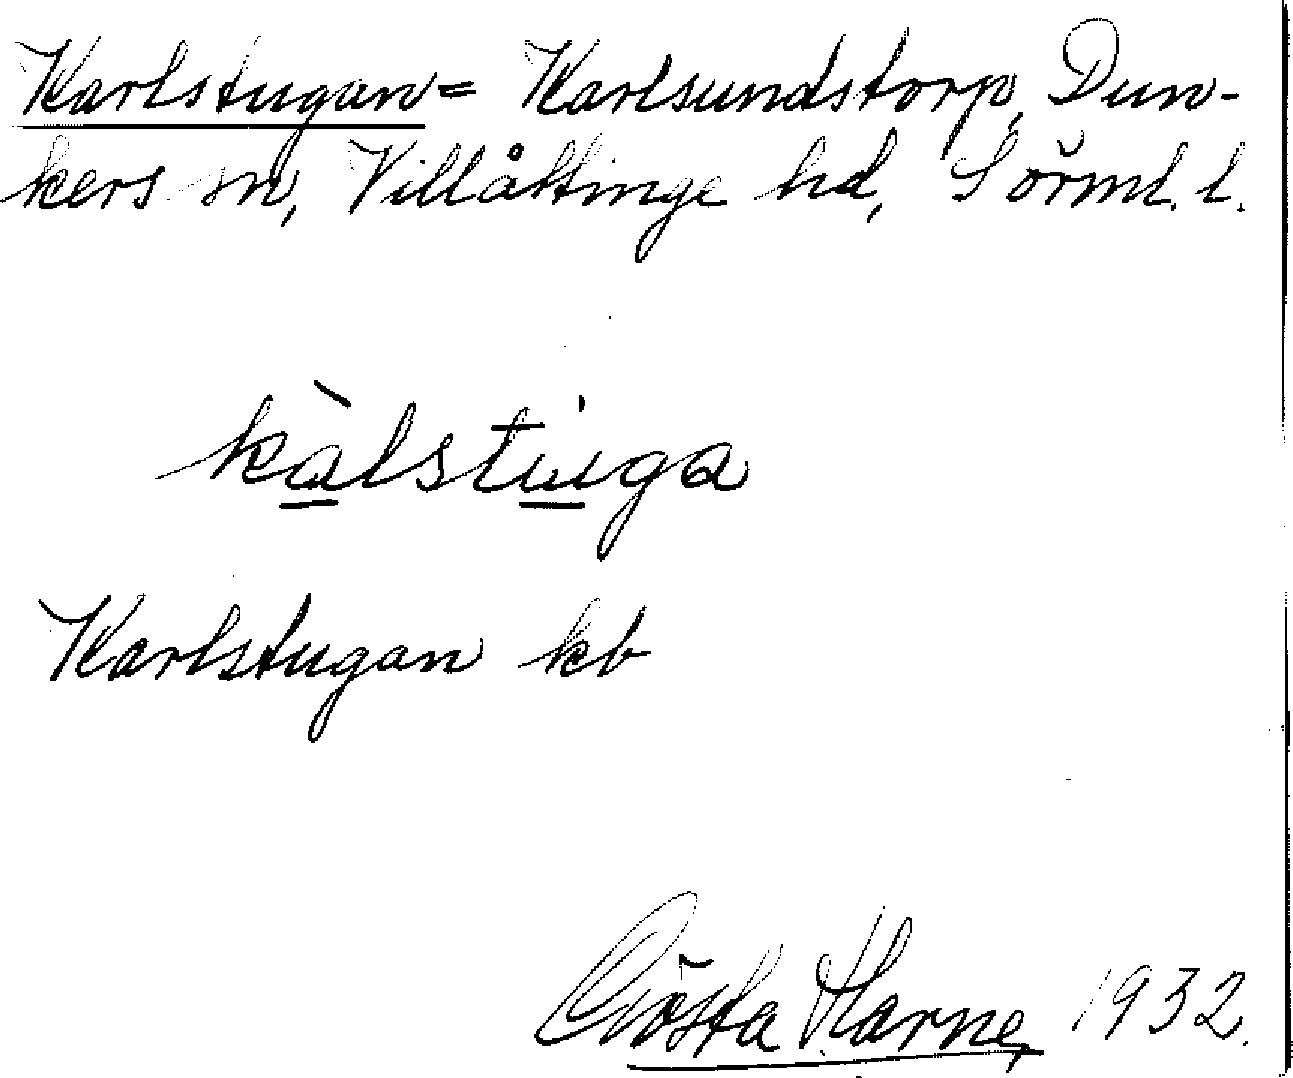 Karlstugan = Karlsundstorp, Dun-
kers sn, Villåttinge hd, Sörml. l.
kàlstu̍ga
Karlstugan kb
Gösta Harne, 1932.